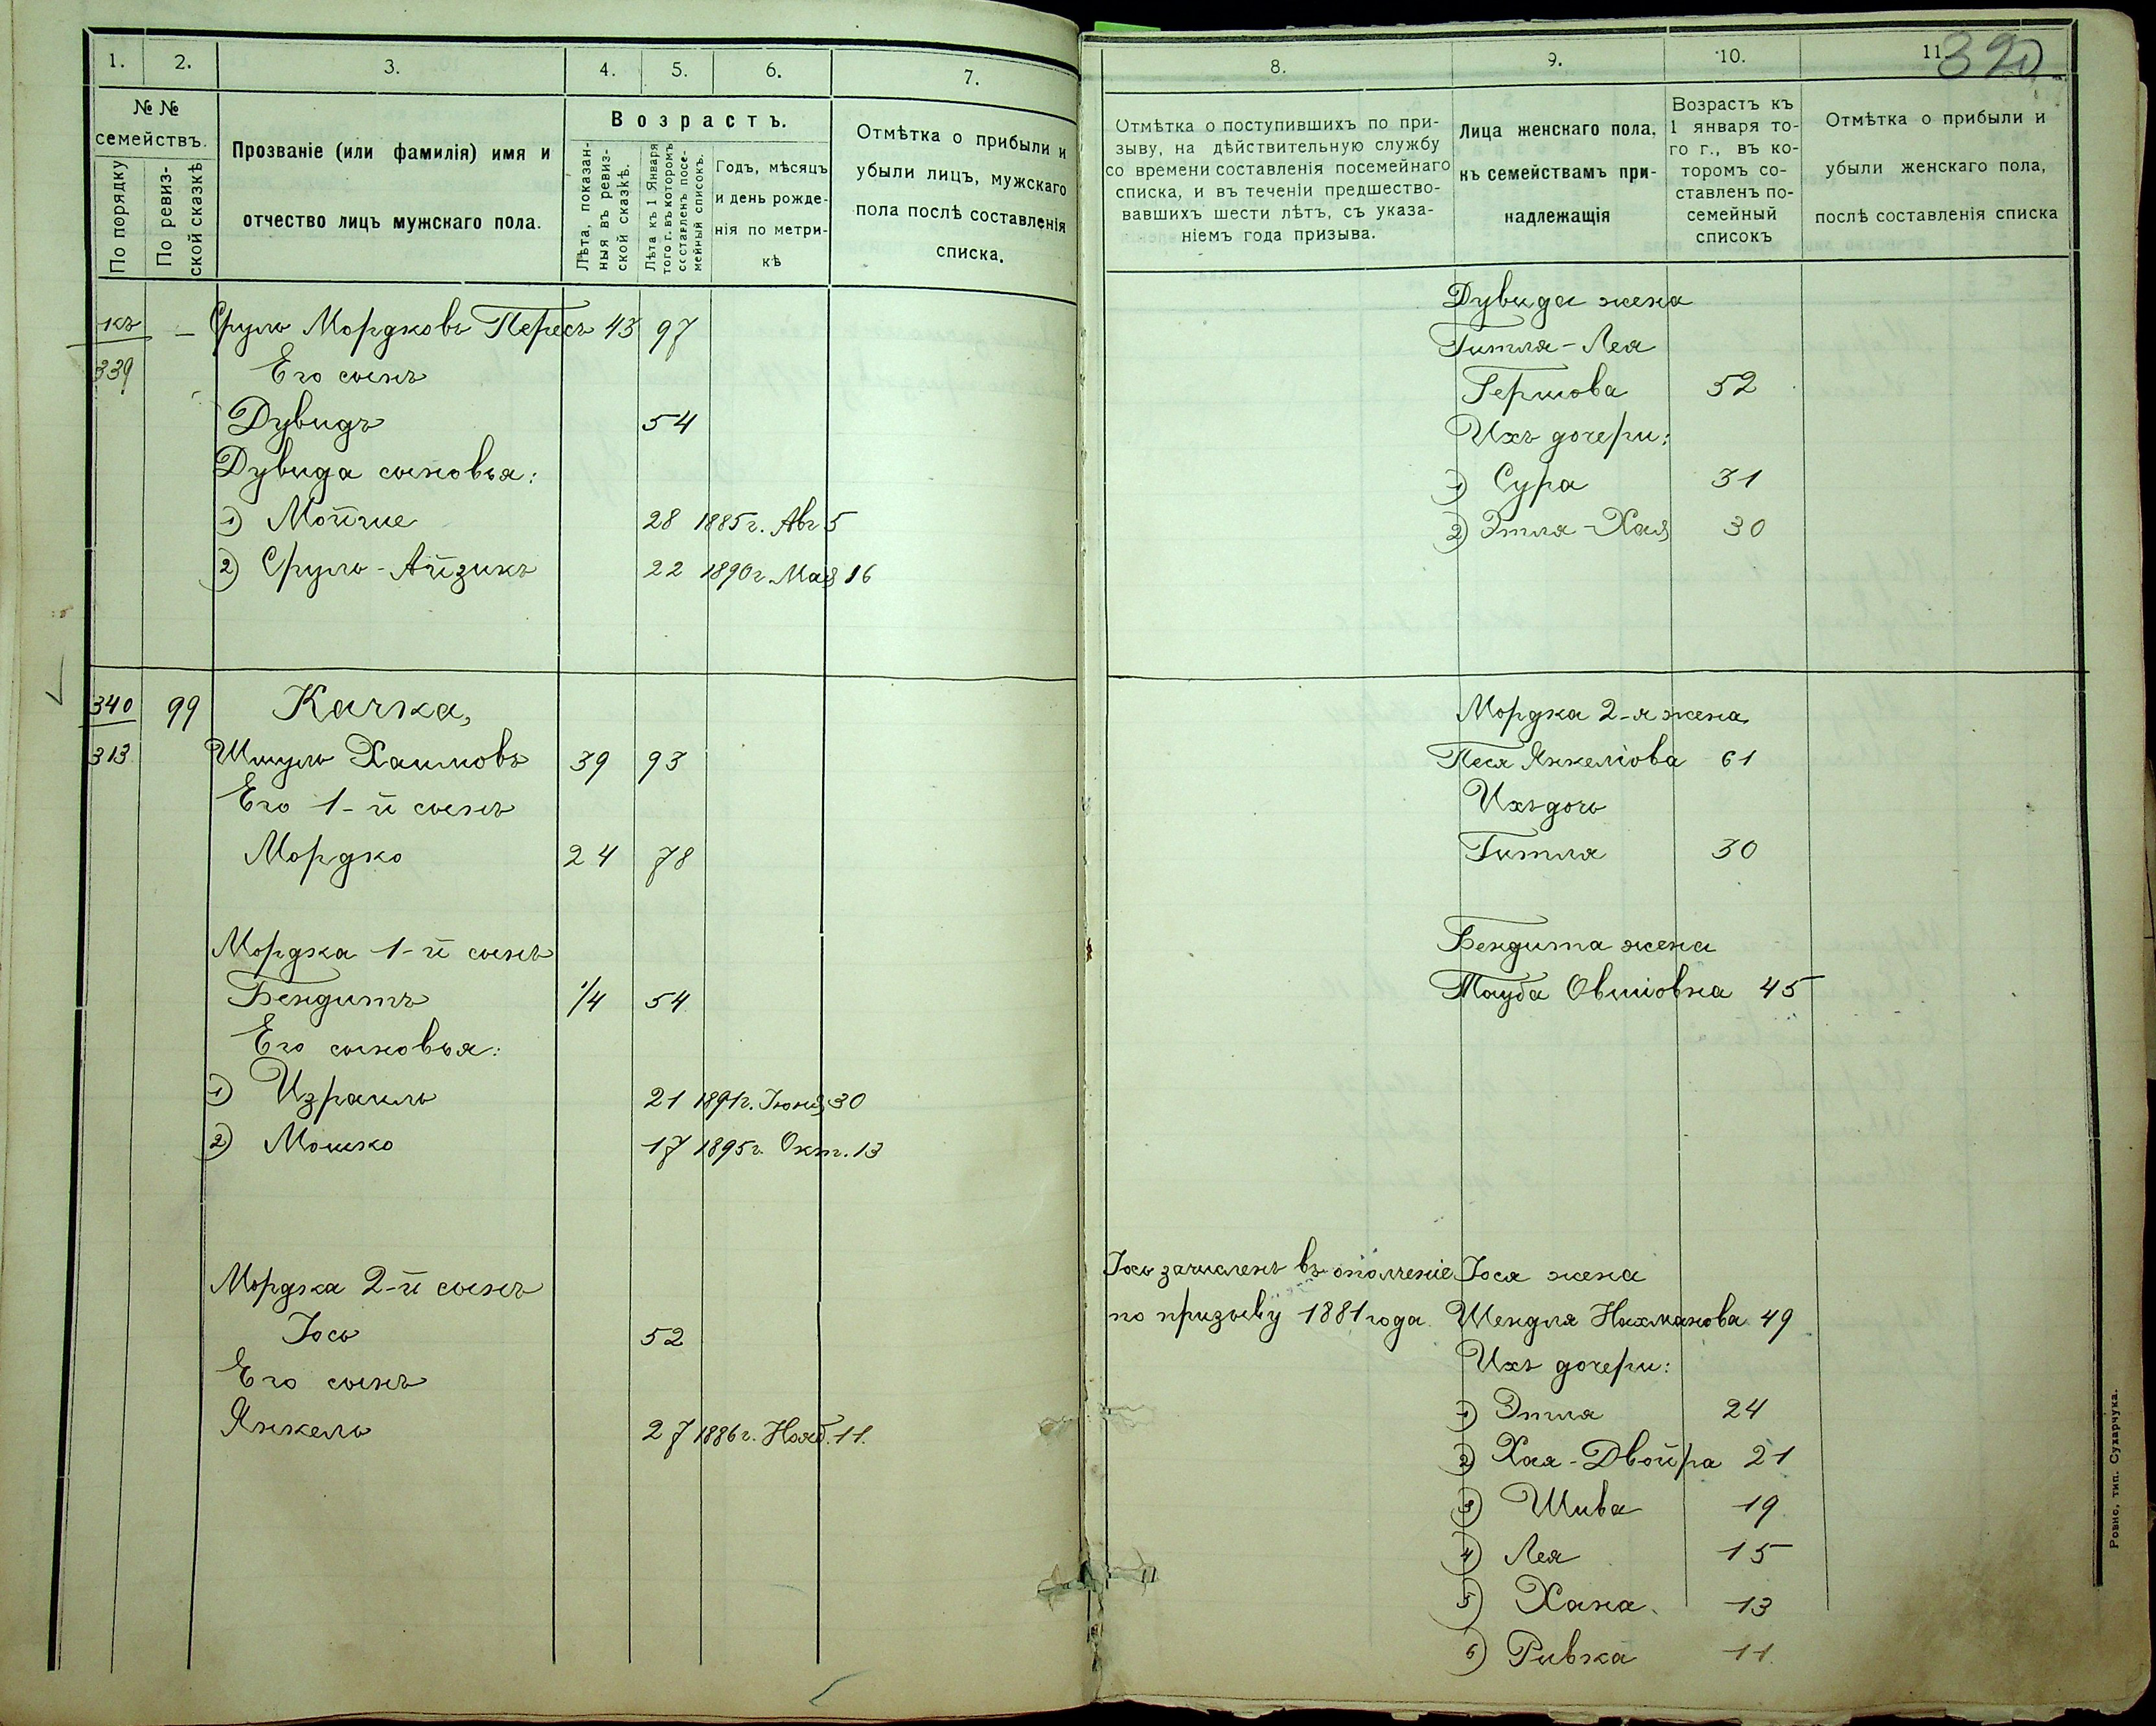 1.
2.
3.
4.
5.
6.
7.
№ №
семействъ.
По порядку
По ревиз-
ской сказкѣ
Прозваніе (или фамилія) имя и
отчество лицъ мужскаго пола.
Возрастъ.
Лѣта, показан-
ныя въ ревиз-
ской сказкѣ.
Лѣта къ 1 Января
того г. въ которомъ
составленъ посе-
мейный списокъ.
Годъ, мѣсяцъ
и день рожде-
нія по метри-
кѣ
Отмѣтка о прибыли и
убыли лицъ, мужскаго
пола послѣ составленія
списка.
къ — Сруль Мордковъ Пересъ 43 97
339 Его сынъ
Дувидъ 54
Дувида сыновья:
1) Мойше 28 1885 г. Авг 5
2) Сруль-Айзикъ 22 1890 г. Мая 16
340 99 Качка,
313 Шмуль Хаимовъ 39 93
Его 1-й сынъ
Мордко 24 78
Мордка 1-й сынъ
Бендитъ 1/4 54
Его сыновья:
1) Израиль 21 1891 г. Іюня 30
2) Мошко 17 1895 г. Окт. 13
Мордка 2-й сынъ
Іось 52
Его сынъ
Янкель 27 1886 г. Нояб. 11.
8.
9.
10.
11.
320
Отмѣтка о поступившихъ по при-
зыву, на дѣйствительную службу
со времени составленія посемейнаго
списка, и въ теченіи предшество-
вавшихъ шести лѣтъ, съ указа-
ніемъ года призыва.
Лица женскаго пола,
къ семействамъ при-
надлежащія
Возрастъ къ
1 января то-
го г., въ ко-
торомъ со-
ставленъ по-
семейный
списокъ
Отмѣтка о прибыли и
убыли женскаго пола,
послѣ составленія списка
Дувида жена
Гитля-Лея
Гершова 52
Ихъ дочери:
1) Сура 31
2) Этля-Хая 30
Мордка 2-я жена
Песя Янкеліова 61
Ихъ дочь
Гитля 30
Бендита жена
Тауба Овшіовна 45
Іось зачисленъ въ ополченіе Іося жена
по призыву 1881 года. Шендля Нахманова 49
Ихъ дочери:
1) Этля 24
2) Хая-Двойра 21
3) Шива 19
4) Лея 15
5) Хана 13
6) Ривка 11
Ровно, тип. Сухарчука.